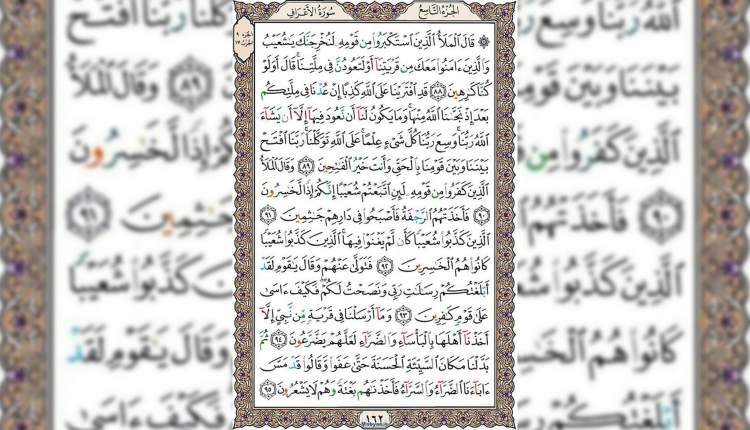 سُورَةُ الأَعْرَافِ الجُزْءُ التَّاسِعُ
۞ قَالَ ٱلْمَلَأُ ٱلَّذِينَ ٱسْتَكْبَرُوا۟ مِن قَوْمِهِۦ لَنُخْرِجَنَّكَ يَـٰشُعَيْبُ
وَٱلَّذِينَ ءَامَنُوا۟ مَعَكَ مِن قَرْيَتِنَآ أَوْ لَتَعُودُنَّ فِى مِلَّتِنَا ۚ قَالَ أَوَلَوْ
كُنَّا كَـٰرِهِينَ ٨٨ قَدِ ٱفْتَرَيْنَا عَلَى ٱللَّهِ كَذِبًا إِنْ عُدْنَا فِى مِلَّتِكُم
بَعْدَ إِذْ نَجَّىٰنَا ٱللَّهُ مِنْهَا ۚ وَمَا يَكُونُ لَنَآ أَن نَّعُودَ فِيهَآ إِلَّآ أَن يَشَآءَ
ٱللَّهُ رَبُّنَا ۚ وَسِعَ رَبُّنَا كُلَّ شَىْءٍ عِلْمًا ۚ عَلَى ٱللَّهِ تَوَكَّلْنَا ۚ رَبَّنَا ٱفْتَحْ
بَيْنَنَا وَبَيْنَ قَوْمِنَا بِٱلْحَقِّ وَأَنتَ خَيْرُ ٱلْفَـٰتِحِينَ ٨٩ وَقَالَ ٱلْمَلَأُ
ٱلَّذِينَ كَفَرُوا۟ مِن قَوْمِهِۦ لَئِنِ ٱتَّبَعْتُمْ شُعَيْبًا إِنَّكُمْ إِذًا لَّخَـٰسِرُونَ
٩٠ فَأَخَذَتْهُمُ ٱلرَّجْفَةُ فَأَصْبَحُوا۟ فِى دَارِهِمْ جَـٰثِمِينَ ٩١
ٱلَّذِينَ كَذَّبُوا۟ شُعَيْبًا كَأَن لَّمْ يَغْنَوْا۟ فِيهَا ۚ ٱلَّذِينَ كَذَّبُوا۟ شُعَيْبًا
كَانُوا۟ هُمُ ٱلْخَـٰسِرِينَ ٩٢ فَتَوَلَّىٰ عَنْهُمْ وَقَالَ يَـٰقَوْمِ لَقَدْ
أَبْلَغْتُكُمْ رِسَـٰلَـٰتِ رَبِّى وَنَصَحْتُ لَكُمْ ۖ فَكَيْفَ ءَاسَىٰ
عَلَىٰ قَوْمٍ كَـٰفِرِينَ ٩٣ وَمَآ أَرْسَلْنَا فِى قَرْيَةٍ مِّن نَّبِىٍّ إِلَّآ
أَخَذْنَآ أَهْلَهَا بِٱلْبَأْسَآءِ وَٱلضَّرَّآءِ لَعَلَّهُمْ يَضَّرَّعُونَ ٩٤ ثُمَّ
بَدَّلْنَا مَكَانَ ٱلسَّيِّئَةِ ٱلْحَسَنَةَ حَتَّىٰ عَفَوا۟ وَّقَالُوا۟ قَدْ مَسَّ
ءَابَآءَنَا ٱلضَّرَّآءُ وَٱلسَّرَّآءُ فَأَخَذْنَـٰهُم بَغْتَةً وَهُمْ لَا يَشْعُرُونَ ٩٥
١٦٢